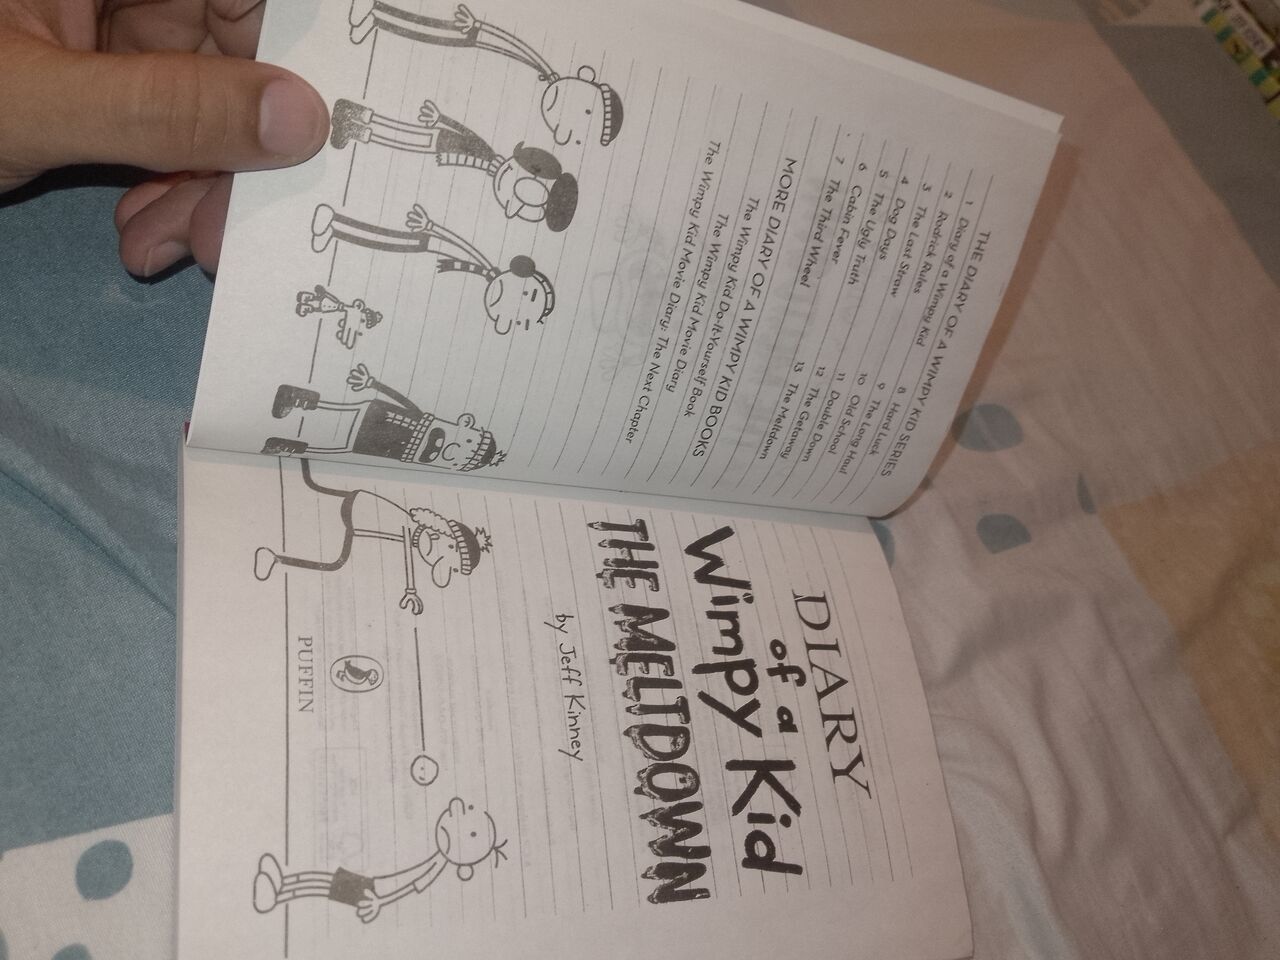 THE DIARY OF A WIMPY KID SERIES
1 Diary of a Wimpy Kid
2 Rodrick Rules
3 The Last Straw
4 Dog Days
5 The Ugly Truth
6 Cabin Fever
7 The Third Wheel
8 Hard Luck
9 The Long Haul
10 Old School
11 Double Down
12 The Getaway
13 The Meltdown
MORE DIARY OF A WIMPY KID BOOKS
The Wimpy Kid Do-It-Yourself Book
The Wimpy Kid Movie Diary
The Wimpy Kid Movie Diary: The Next Chapter
DIARY
of a
Wimpy Kid
THE MELTDOWN
by Jeff Kinney
PUFFIN